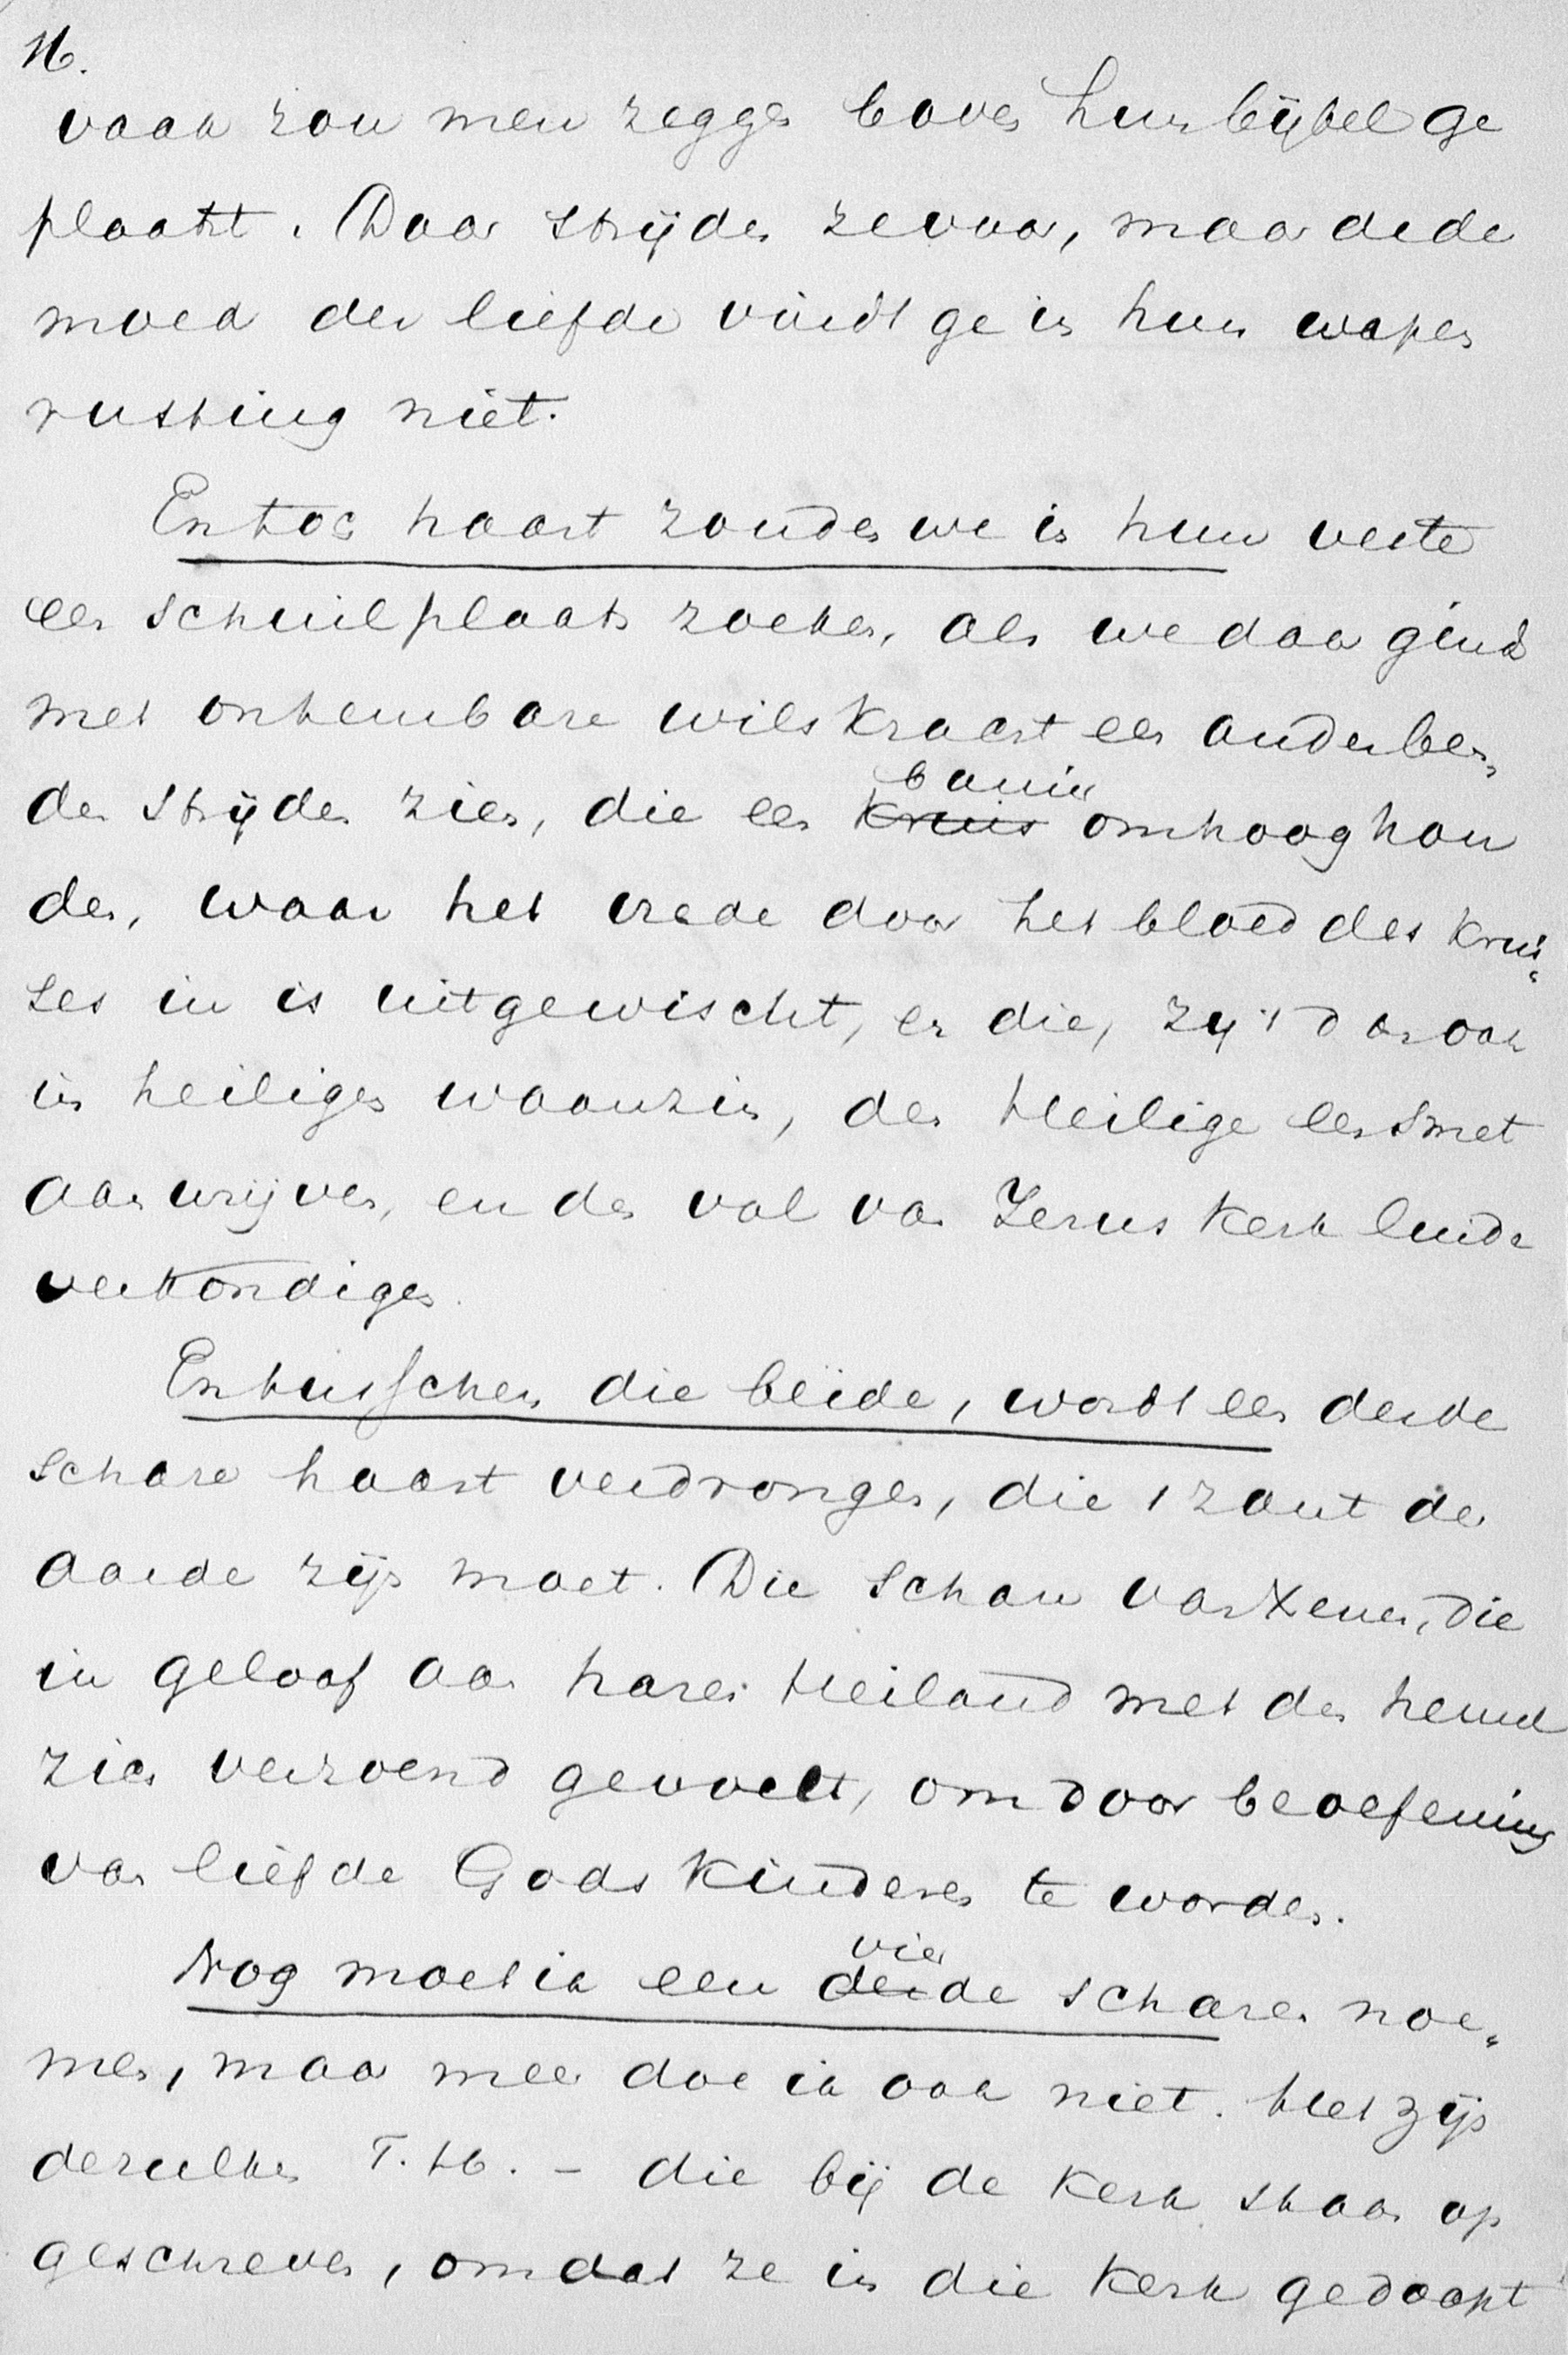 16.
vaak zou men zeggen boven hun bijbel ge
plaatst. Daar strijden ze voor, maar de de
moed der liefde vindt ge in hun wapen
rusting niet.
En toch haast zouden we in hun veste
een schuilplaats zoeken, als we daar ginds
met ontembare wilskracht een ander ben„
de strijden zien, die een ~~kruis~~ banier omhoog hou
den, waar het vrede door het bloed des krui„
ses in is uitgewischt, en die, zij 't dan ook
in heiligen waanzin, den Heilige een smet
aanwrijven, en den val van Jezus kerk luide
verkondigen.
En tusschen die beide, wordt een derde
schare haast verdrongen, die 't zout der
aarde zijn moet. Die schare van , die
in geloof aan haren Heiland met den hemel
zich verzoend gevoelt, om door beoefening
van liefde Gods kinderen te worden.
Nog moet ik een ~~der~~ vierde schare noe„
men, maar meer doe ik ook niet. Het zijn
dezulken T. H. – die bij de kerk staan op
geschreven, omdat ze in die kerk gedoopt